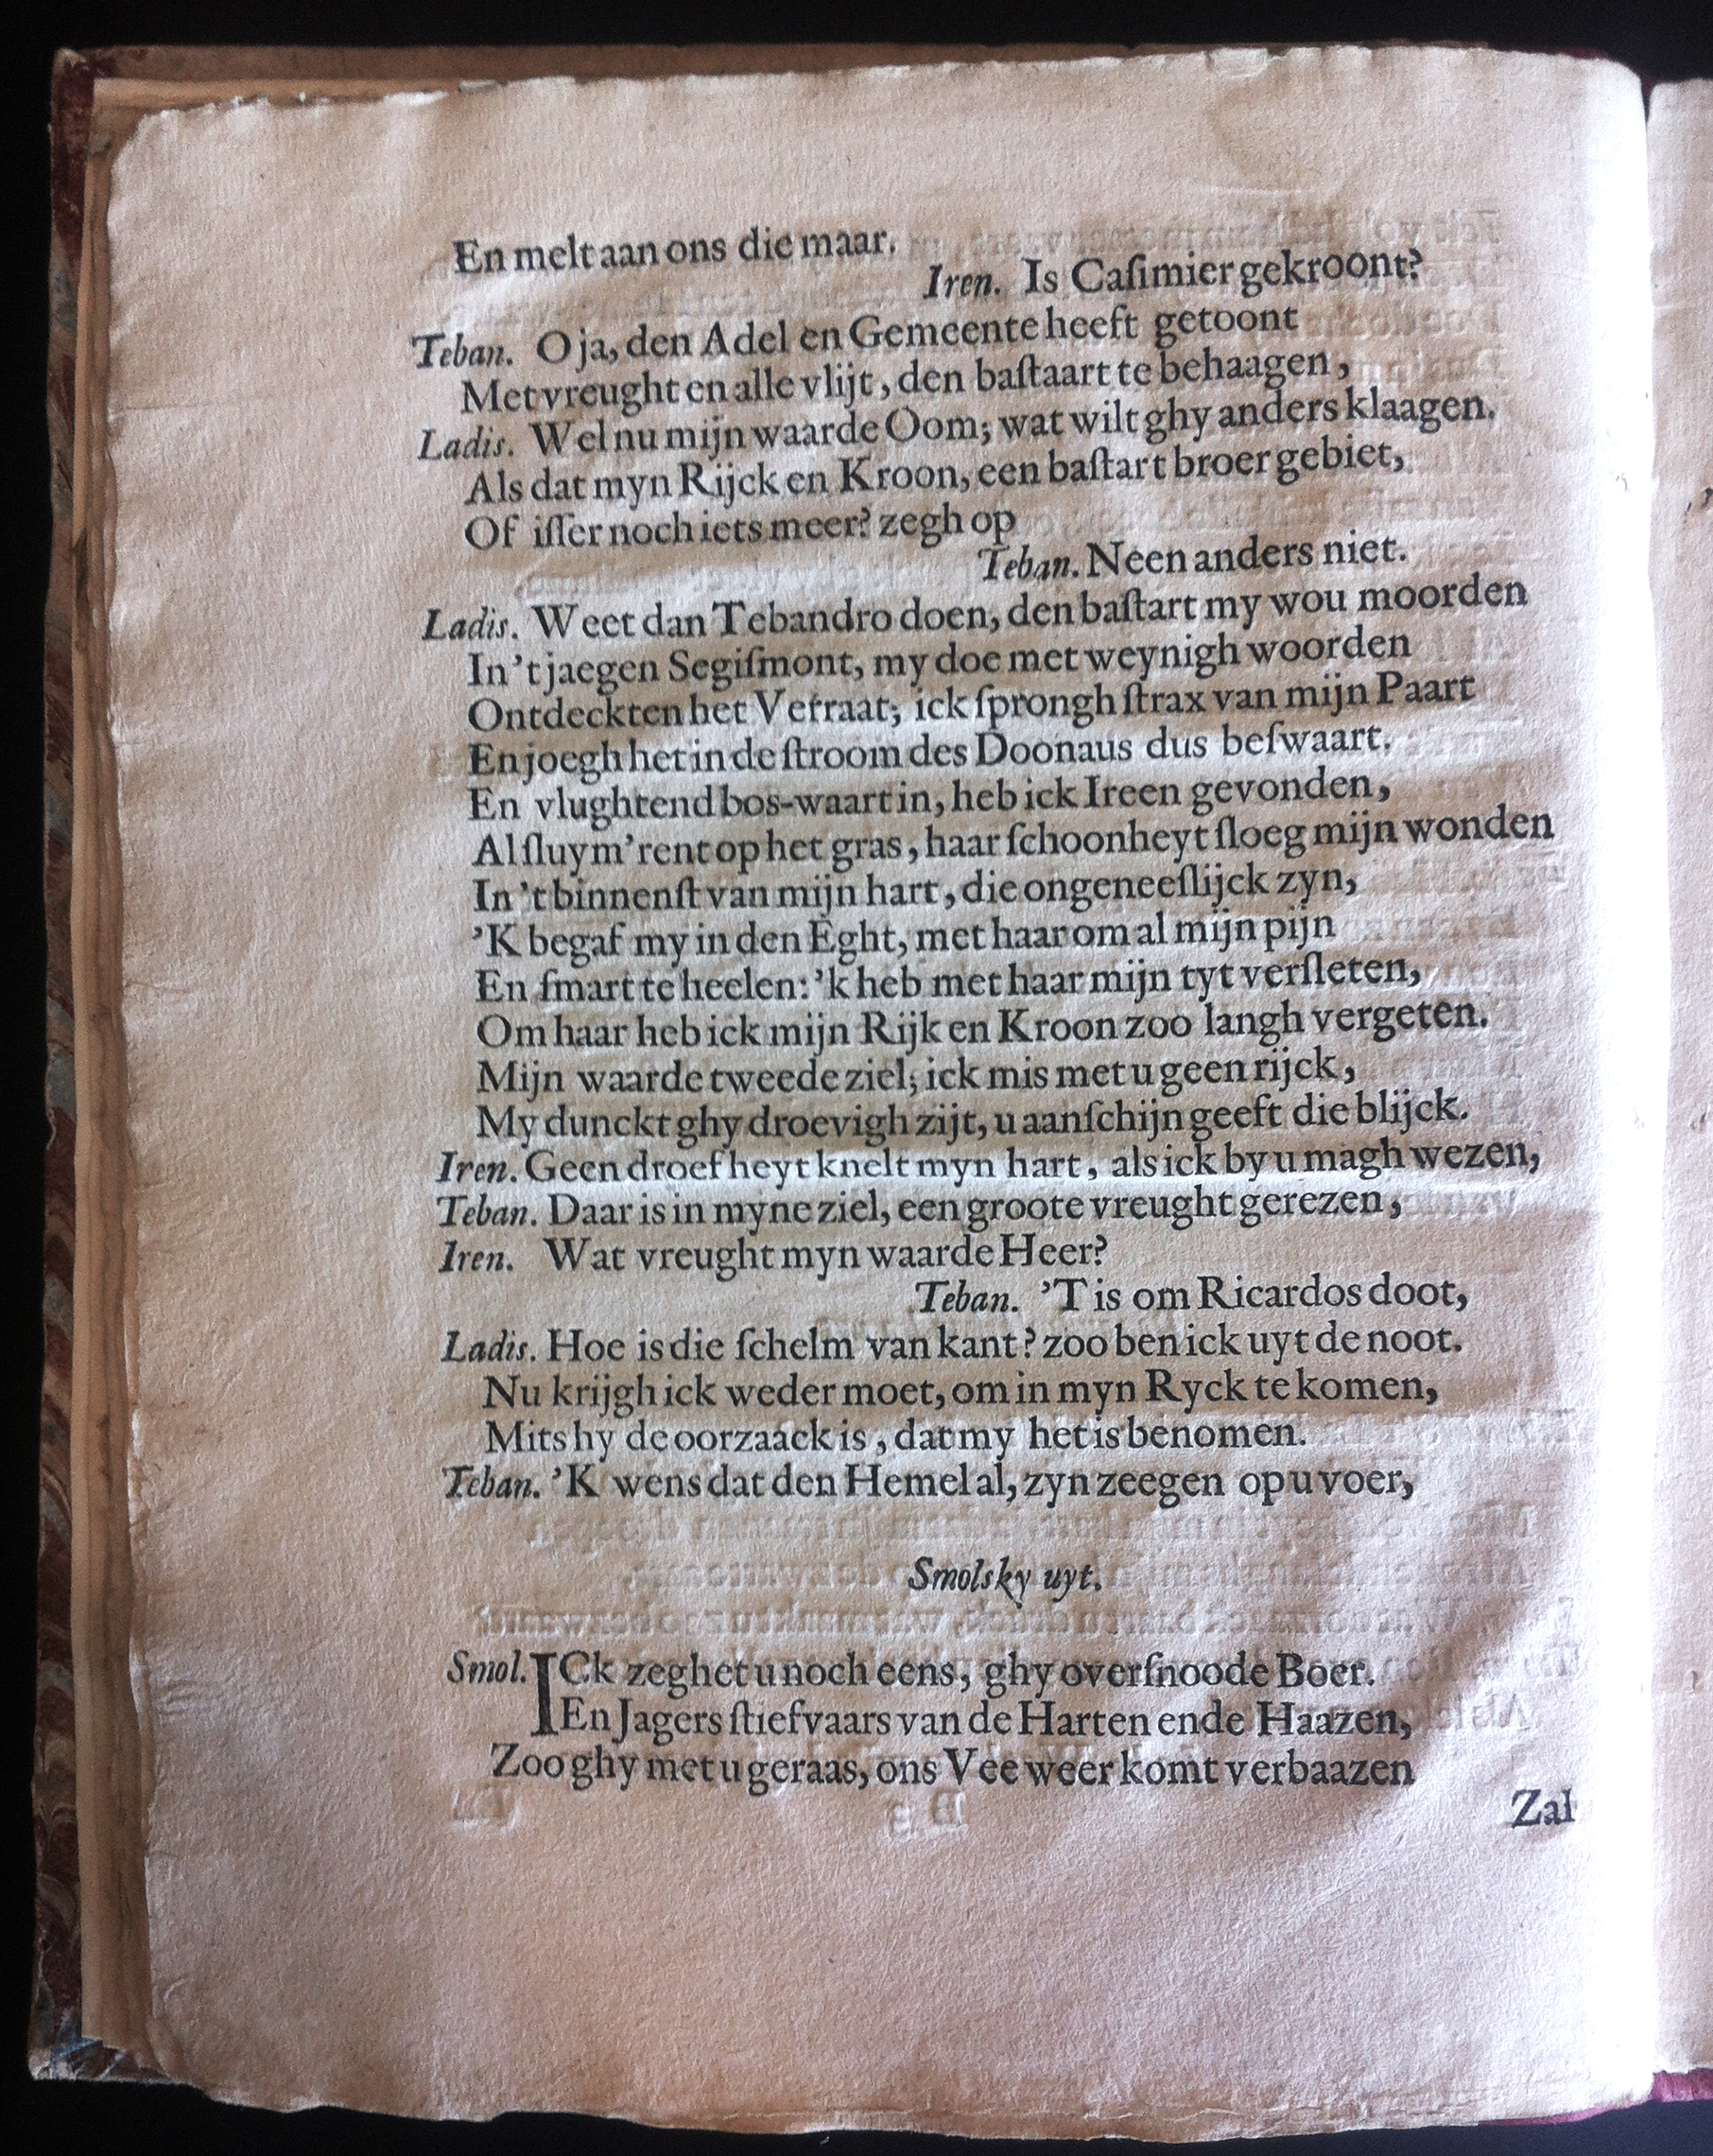 En melt aan ons die maar.
Iren. Is Caſimier gekroont?
Teban. O ja, den Adel en Gemeente heeft getoont
Met vreught en alle vlijt, den baſtaart te behaagen,
Ladis. Wel nu mijn waarde Oom; wat wilt ghy anders klaagen.
Als dat myn Rijck en Kroon, een baſtart broer gebiet,
Of iſſer noch iets meer? zegh op
Teban. Neen anders niet.
Ladis. Weet dan Tebandro doen, den baſtart my wou moorden
In 't jaegen Segiſmont, my doe met weynigh woorden
Ontdeckten het Verraat; ick ſprongh ſtrax van mijn Paart
En joegh het in de ſtroom des Doonaus dus beſwaart.
En vlughtend bos-waart in, heb ick Ireen gevonden,
Al ſluym'rent op het gras, haar ſchoonheyt ſloeg mijn wonden
In 't binnenſt van mijn hart, die ongeneeſlijck zyn,
'K begaf my in den Eght, met haar om al mijn pijn
En ſmart te heelen: 'k heb met haar mijn tyt verſleten,
Om haar heb ick mijn Rijk en Kroon zoo langh vergeten.
Mijn waarde tweede ziel; ick mis met u geen rijck,
My dunckt ghy droevigh zijt, u aanſchijn geeft die blijck.
Iren. Geen droefheyt knelt myn hart, als ick by u magh wezen,
Teban. Daar is in myne ziel, een groote vreught gerezen,
Iren. Wat vreught myn waarde Heer?
Teban. 'T is om Ricardos doot,
Ladis. Hoe is die ſchelm van kant? zoo ben ick uyt de noot.
Nu krijgh ick weder moet, om in myn Ryck te komen,
Mits hy de oorzaack is, dat my het is benomen.
Teban. 'K wens dat den Hemel al, zyn zeegen op u voer,
Smolsky uyt.
Smol. ICk zeg het u noch eens, ghy overſnoode Boer.
En Jagers ſtiefvaars van de Harten ende Haazen,
Zoo ghy met u geraas, ons Vee weer komt verbaazen
Zal